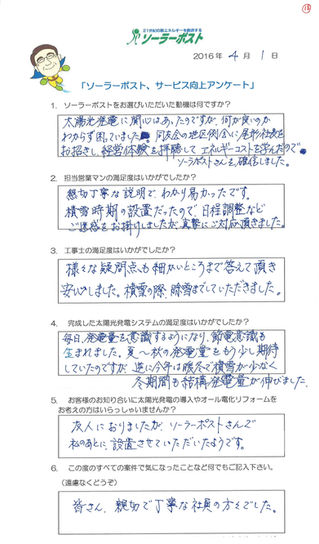 18
21世紀の新エネルギーを創造する
ソーラーポスト
2016年 4月 1日
「ソーラーポスト、サービス向上アンケート」
1. ソーラーポストをお選びいただいた動機は何ですか?
太陽光発電に関心はあったのですが、何が良いのか
わからず困っていました 同友会の地区例会に尾形社長を
お招きし、経営体験を拝聴してエネルギーコストを学んだので
ソーラーポストさんを確信しました。
2. 担当営業マンの満足度はいかがでしたか?
懇切丁寧な説明でわかり易かったです。
積雪時期の設置だったので日程調整など
ご迷惑をお掛けしましたが真摯にご対応頂きました。
3. 工事士の満足度はいかがでしたか?
様々な疑問点も細かいところまで答えて頂き
安心しました。積雪の際、除雪までしていただきました。
4. 完成した太陽光発電システムの満足度はいかがでしたか?
毎日、発電量を意識するようになり、節電意識も
生まれました。夏〜秋の発電量をもう少し期待
していたのですが 逆に今年は暖冬で積雪が少なく
冬期間も結構発電量が伸びました。
5. お客様のお知り合いに太陽光発電の導入やオール電化リフォームを
お考えの方はいらっしゃいませんか?
友人におりましたが、ソーラーポストさんで
私のあとに、設置させていただいたようです。
6. この度のすべての案件で気になったことなど何でもご記入下さい。
(遠慮なくどうぞ)
皆さん、親切で丁寧な社員の方々でした。